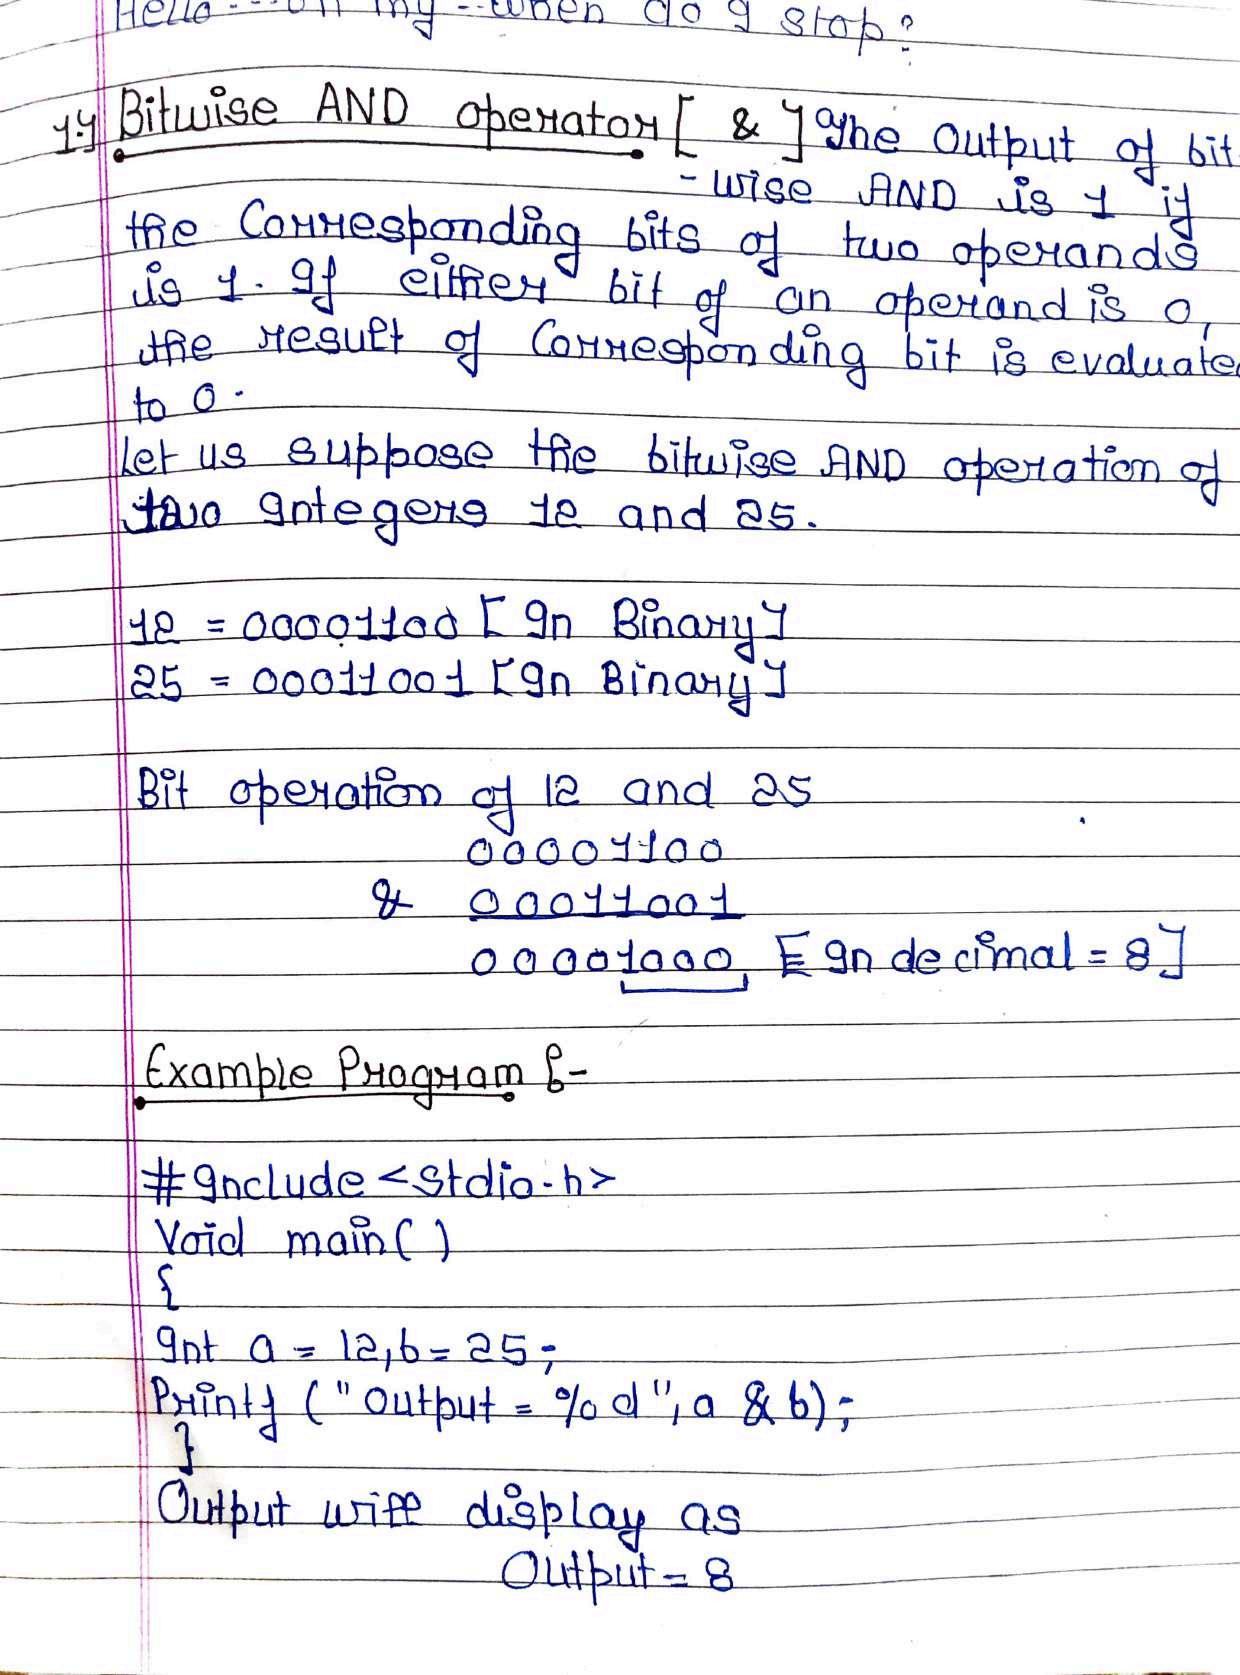 Hello---oh my--when do I stop?
1.] Bitwise AND operator [ & ] The Output of bit
-wise AND is 1 if
the Corresponding bits of two operands
is 1. If either bit of an operand is 0,
the result of Corresponding bit is evaluated
to 0.
Let us suppose the bitwise AND operation of
two Integers 12 and 25.
12 = 00001100 [In Binary]
25 = 00011001 [In Binary]
Bit operation of 12 and 25
00001100
& 00011001
00001000 [In decimal = 8]
Example Program :-
#Include <stdio.h>
Void main( )
{
Int a = 12, b = 25;
Printf ("Output = %d", a & b);
}
Output will display as
Output = 8